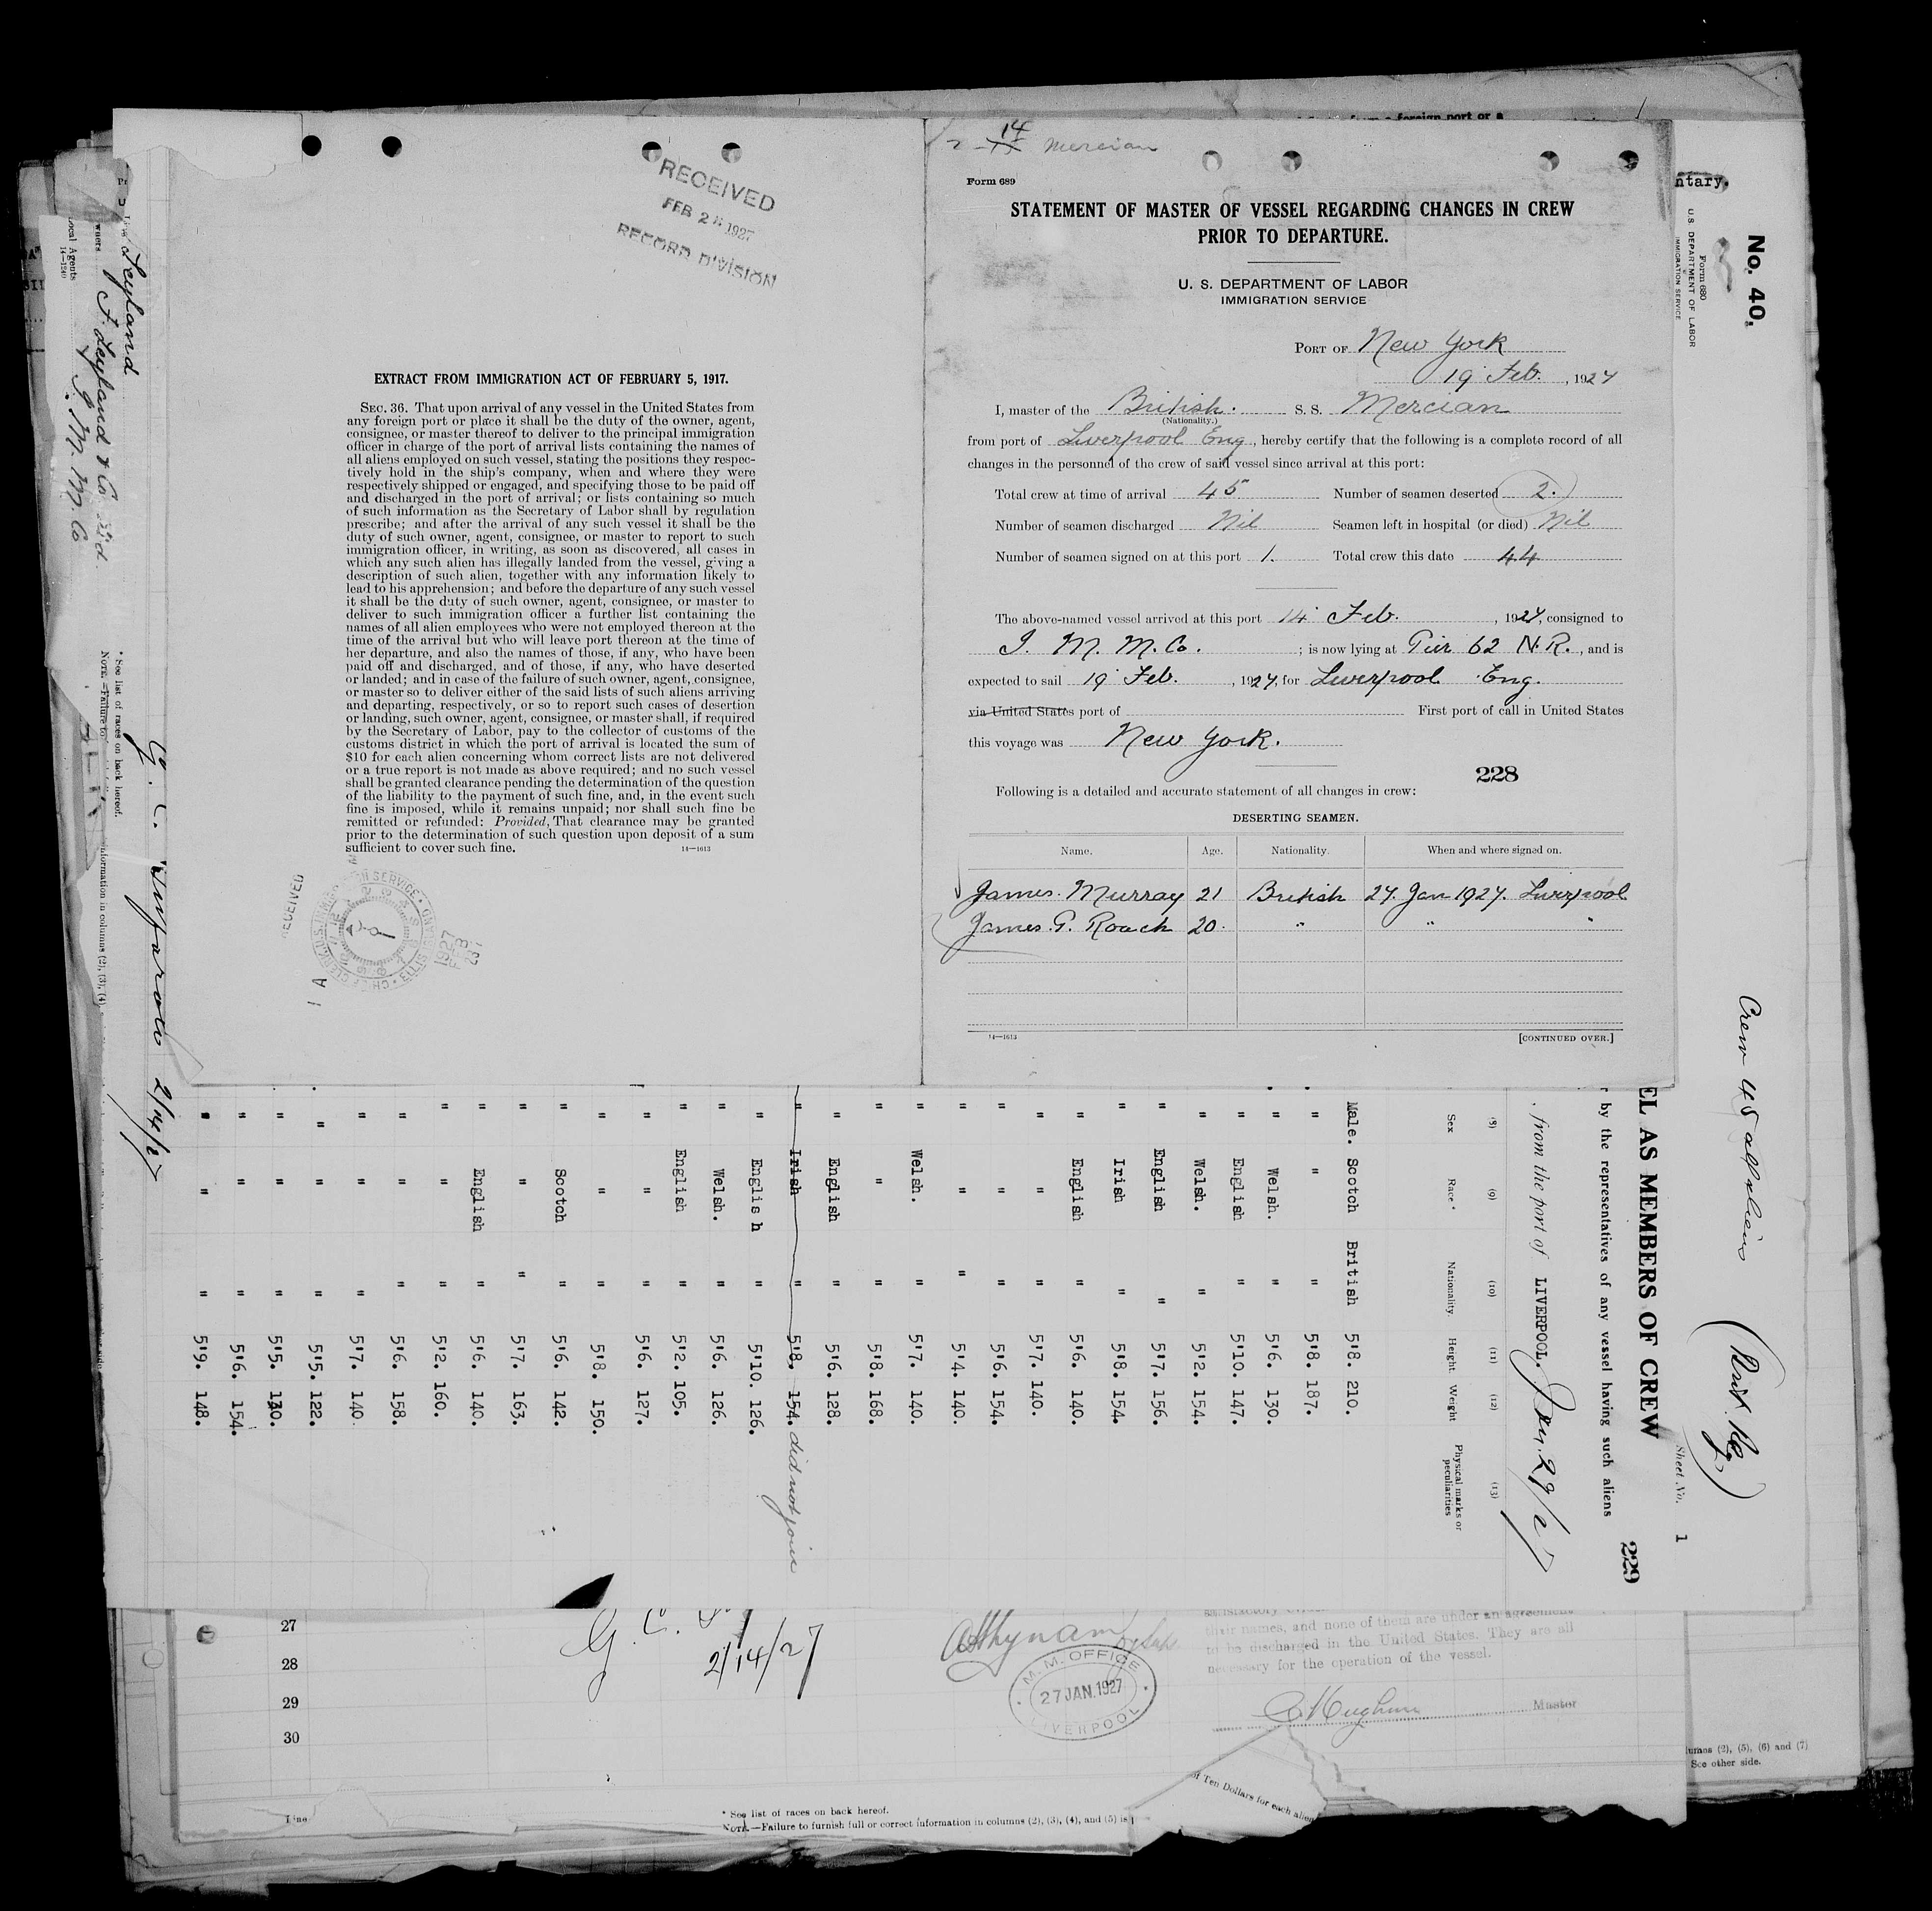 RECEIVED
FEB 2 1927
RECORD DIVISION
EXTRACT FROM IMMIGRATION ACT OF FEBRUARY 5, 1917.
SEC. 36. That upon arrival of any vessel in the United States from
any foreign port or place it shall be the duty of the owner, agent,
consignee, or master thereof to deliver to the principal immigration
officer in charge of the port of arrival lists containing the names of
all aliens employed on such vessel, stating the positions they respec-
tively hold in the ship's company, when and where they were
respectively shipped or engaged, and specifying those to be paid off
and discharged in the port of arrival; or lists containing so much
of such information as the Secretary of Labor shall by regulation
prescribe; and after the arrival of any such vessel it shall be the
duty of such owner, agent, consignee, or master to report to such
immigration officer, in writing, as soon as discovered, all cases in
which any such alien has illegally landed from the vessel, giving a
description of such alien, together with any information likely to
lead to his apprehension; and before the departure of any such vessel
it shall be the duty of such owner, agent, consignee, or master to
deliver to such immigration officer a further list containing the
names of all alien employees who were not employed thereon at the
time of the arrival but who will leave port thereon at the time of
her departure, and also the names of those, if any, who have been
paid off and discharged, and of those, if any, who have deserted
or landed; and in case of the failure of such owner, agent, consignee,
or master so to deliver either of the said lists of such aliens arriving
and departing, respectively, or so to report such cases of desertion
or landing, such owner, agent, consignee, or master shall, if required
by the Secretary of Labor, pay to the collector of customs of the
customs district in which the port of arrival is located the sum of
$10 for each alien concerning whom correct lists are not delivered
or a true report is not made as above required; and no such vessel
shall be granted clearance pending the determination of the question
of the liability to the payment of such fine, and, in the event such
fine is imposed, while it remains unpaid; nor shall such fine be
remitted or refunded: Provided, That clearance may be granted
prior to the determination of such question upon deposit of a sum
sufficient to cover such fine.
14—1613
RECEIVED
1927
FEB
23
14 Mercian
Form 689
STATEMENT OF MASTER OF VESSEL REGARDING CHANGES IN CREW
PRIOR TO DEPARTURE.
U. S. DEPARTMENT OF LABOR
IMMIGRATION SERVICE
PORT OF New York
19 Feb. , 1927
I, master of the British. S. S. Mercian
(Nationality.)
from port of Liverpool Eng, hereby certify that the following is a complete record of all
changes in the personnel of the crew of said vessel since arrival at this port:
Total crew at time of arrival 45 Number of seamen deserted 2.
Number of seamen discharged Nil Seamen left in hospital (or died) Nil
Number of seamen signed on at this port 1. Total crew this date 44
The above-named vessel arrived at this port 14 Feb. , 1927, consigned to
I. M. M. Co. ; is now lying at Pier 62 N.R. , and is
expected to sail 19 Feb. , 1927, for Liverpool Eng.
via United States port of First port of call in United States
this voyage was New York.
228
Following is a detailed and accurate statement of all changes in crew:
DESERTING SEAMEN.
Name. Age. Nationality. When and where signed on.
James Murray 21 British 27 Jan 1927. Liverpool
James G. Roach 20 " " "
14—1613 [CONTINUED OVER.]
ntary.
No. 40.
Form 680
U. S. DEPARTMENT OF LABOR
IMMIGRATION SERVICE
Crew 45 all aliens
Sheet No. 1
229
EL AS MEMBERS OF CREW
by the representatives of any vessel having such aliens
, from the port of LIVERPOOL. Jan. 29/27
(8) (9) (10) (11) (12) (13)
Sex Race * Nationality Height Weight Physical marks or peculiarities
Male. Scotch British 5'8. 210.
" " " 5'8. 187.
" Welsh. " 5'6. 130.
" English " 5'10. 147.
" Welsh. " 5'2. 154.
" English " 5'7. 156.
" Irish " 5'8. 154.
" English " 5'6. 140.
" " " 5'7. 140.
" " " 5'6. 154.
" " " 5'4. 140.
" Welsh. " 5'7. 140.
" " " 5'8. 168.
" English " 5'6. 128.
" Irish " 5'8. 154. did not join
" Englis h " 5'10. 126.
" Welsh. " 5'6. 126.
" English " 5'2. 105.
" " " 5'6. 127.
" " " 5'8. 150.
" Scotch " 5'6. 142.
" " " 5'7. 163.
" English " 5'6. 140.
" " " 5'2. 160.
" " " 5'6. 158.
" " " 5'7. 140.
" " " 5'5. 122.
" " " 5'5. 130.
" " " 5'6. 154.
" " " 5'9. 148.
2/14/27
Leyland
F. Leyland & Co Ltd.
I. M. M. Co
Local Agents
14—1240
* See list of races on back hereof.
NOTE.—Failure to
information in columns (2), (3), (4),
27
28
29
30
G. C.
2/14/27
M. M. OFFICE
27 JAN. 1927
LIVERPOOL
their names, and none of them are under an agreement
to be discharged in the United States. They are all
necessary for the operation of the vessel.
Master
of Ten Dollars for each alien
Line
* See list of races on back hereof.
NOTE.—Failure to furnish full or correct information in columns (2), (3), (4), and (5) is
lumns (2), (5), (6) and (7)
See other side.